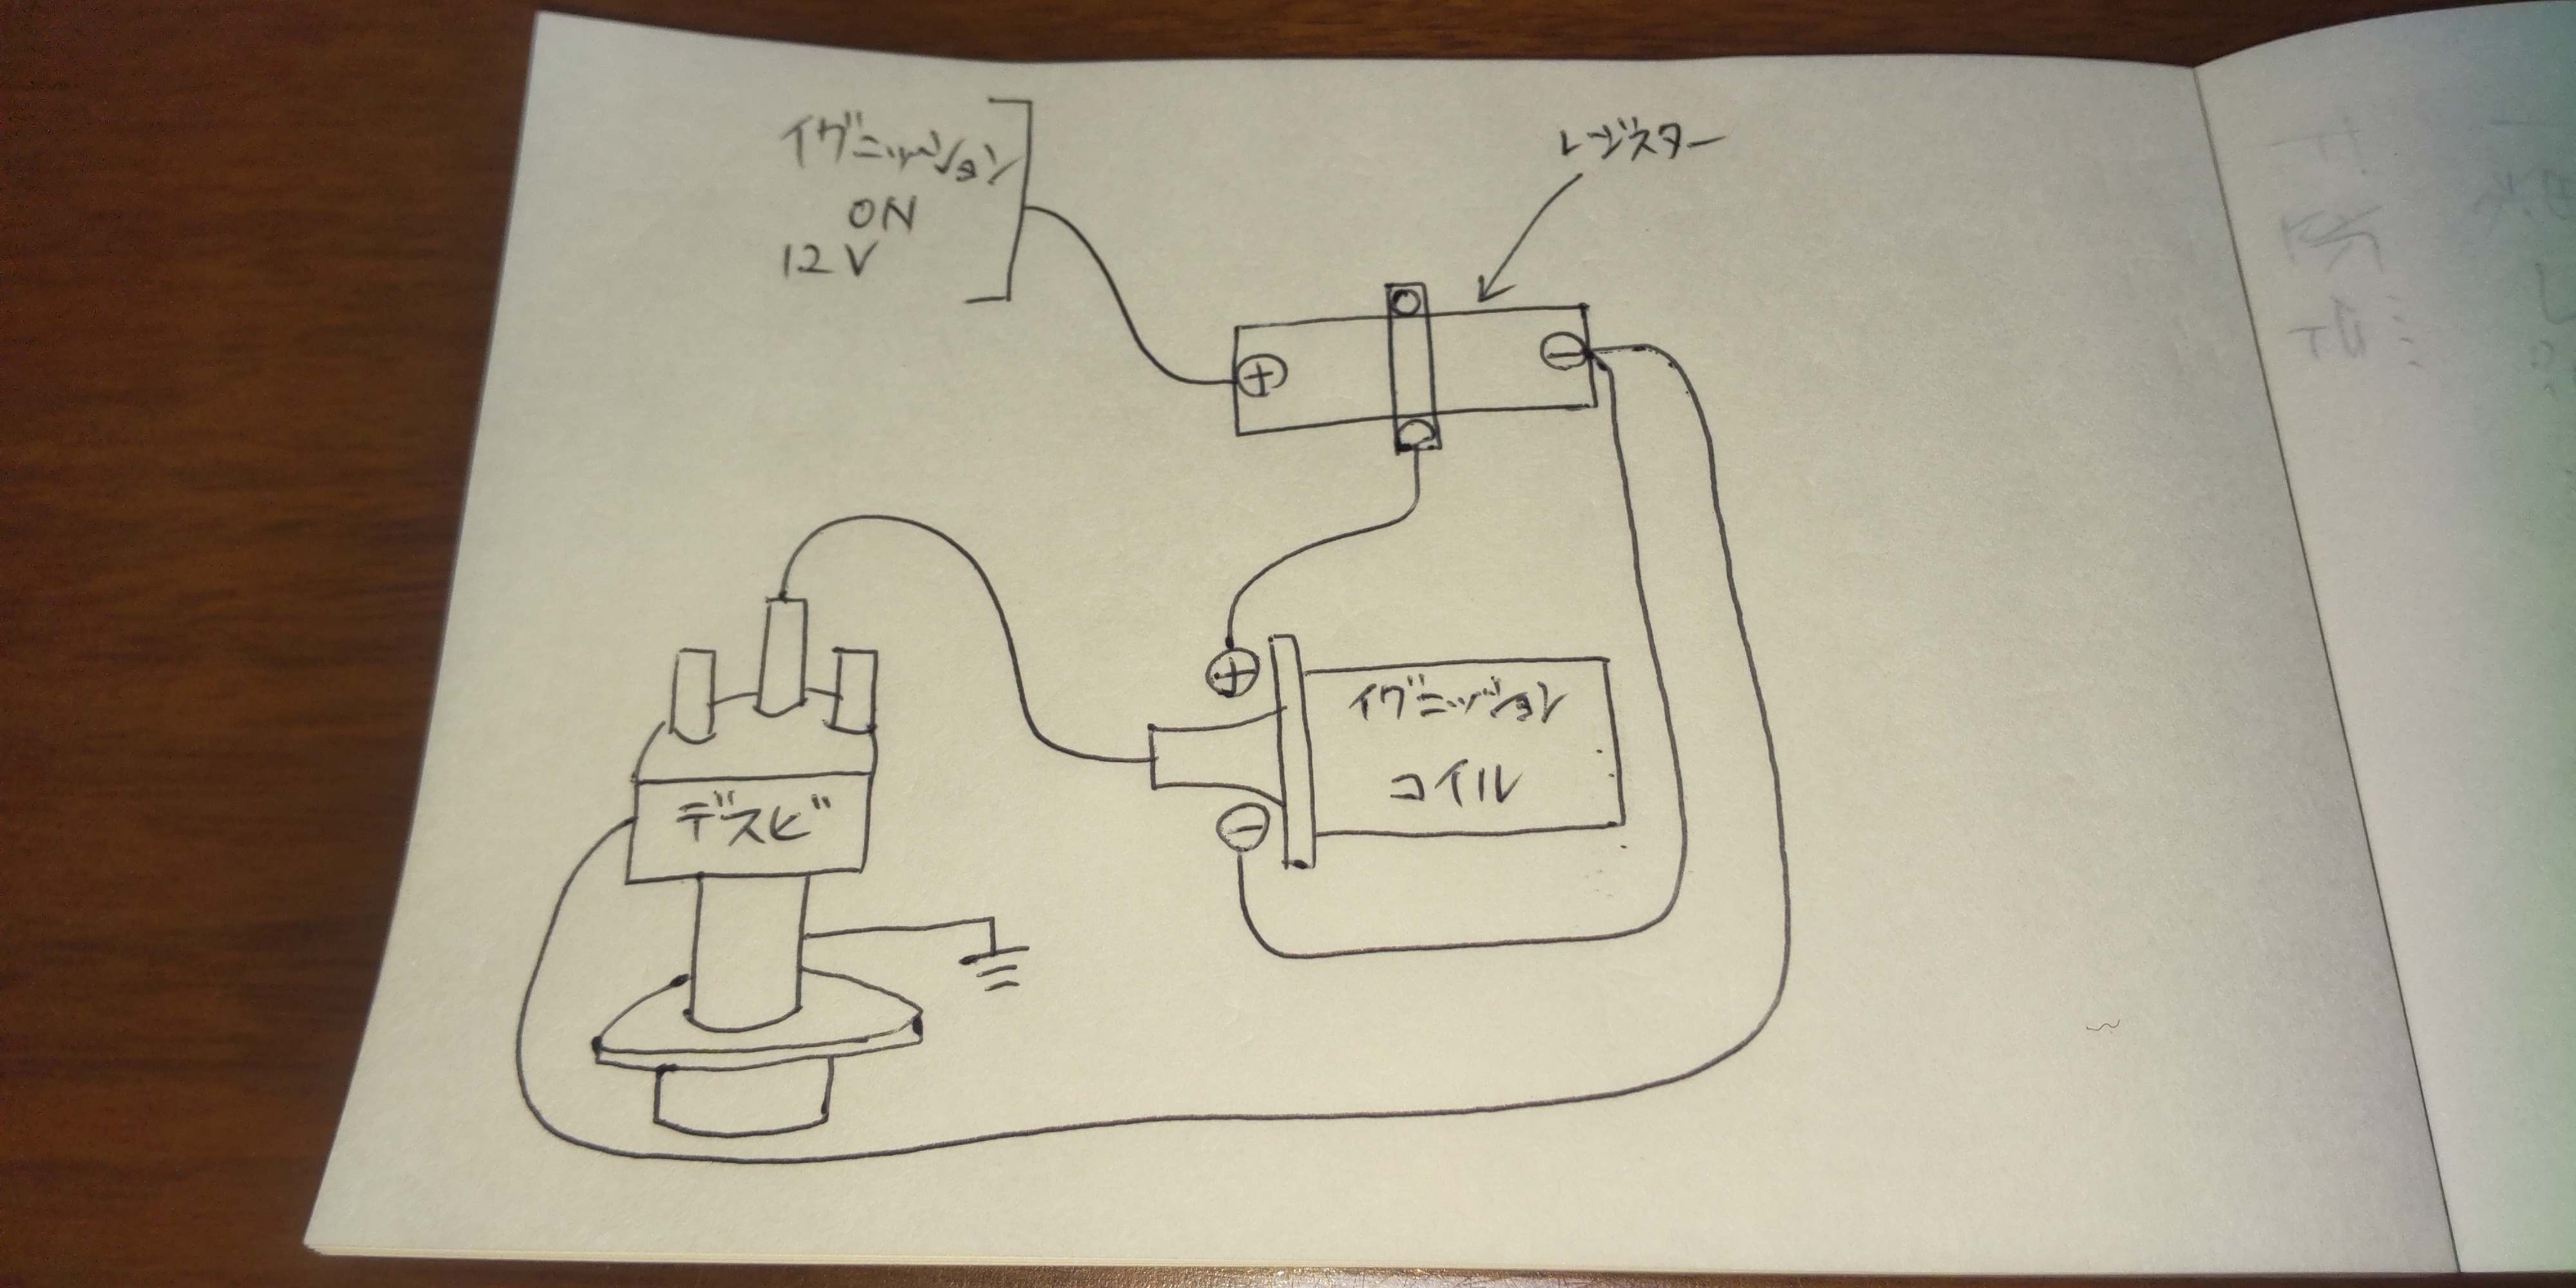 イグニッション
ON
12V
レジスター
⊕
⊖
⊕
イグニッション
コイル
⊖
デスビ